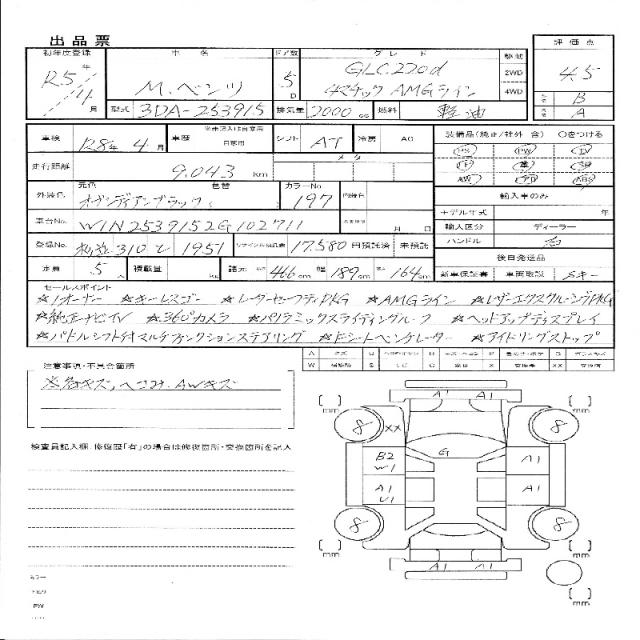 出品票
初年度登録 車名 ドア数 グレード 駆動 評価点
R5年 4月 M.ベンツ 5D GLC220d 4マチック AMGライン 2WD 4WD 4.5
B
A
型式 3DA-253915 排気量 2000cc 燃料 軽油
車検 R8年4月 車歴 自家用 シフト AT 冷房 AC 装備品(純正/社外 含) ○をつける
PS PW
走行距離 9.043km メータ
AW ABS
外装色 元色 オブシディアンブラック 色替 カラーNo 197 内装色 輸入車のみ
モデル年式 年
車台No. W1N2539152G102711 月 日 輸入区分 ディーラー
登録No. 310 て 1951 リサイクル預託金 17.580円預託済 未預託 ハンドル 右
後日発送品
定員 5人 積載量 kg 諸元 466cm 幅 189cm 高 164cm 新車保証書 車両取説 Sキー
セールスポイント
★1オーナー ★キーレスゴー ★レーダーセーフティPKG ★AMGライン ★レザーエクスクルーシブPKG
★純正ナビTV ★360°カメラ ★パノラミックスライディングルーフ ★ヘッドアップディスプレイ
★パドルシフト付マルチファンクションステアリング ★Fシートベンチレーター ★アイドリングストップ
注意事項・不具合箇所
※各キズ、ヘコミ、AWキズ
検査員記入欄.修復歴「有」の場合は修復箇所・交換箇所を記入
A1 A1
mm mm
8 XX 8
G
B2 W1 A1
A1 U1 A1
8 8
mm mm
A1 A1
A1
mm